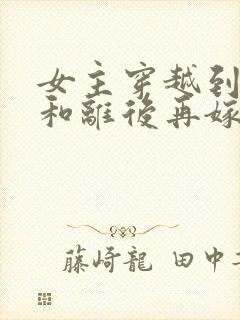 女主穿越到
和離後再嫁
藤崎龍 田中